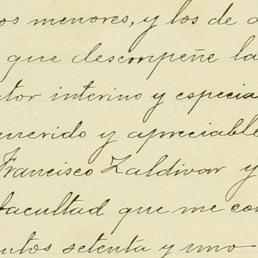 os menores, y los de
que desempeñe la
tor interino y especia
querido y apreciable
Francisco Zaldivar y
facultad que me con
entos setenta y uno